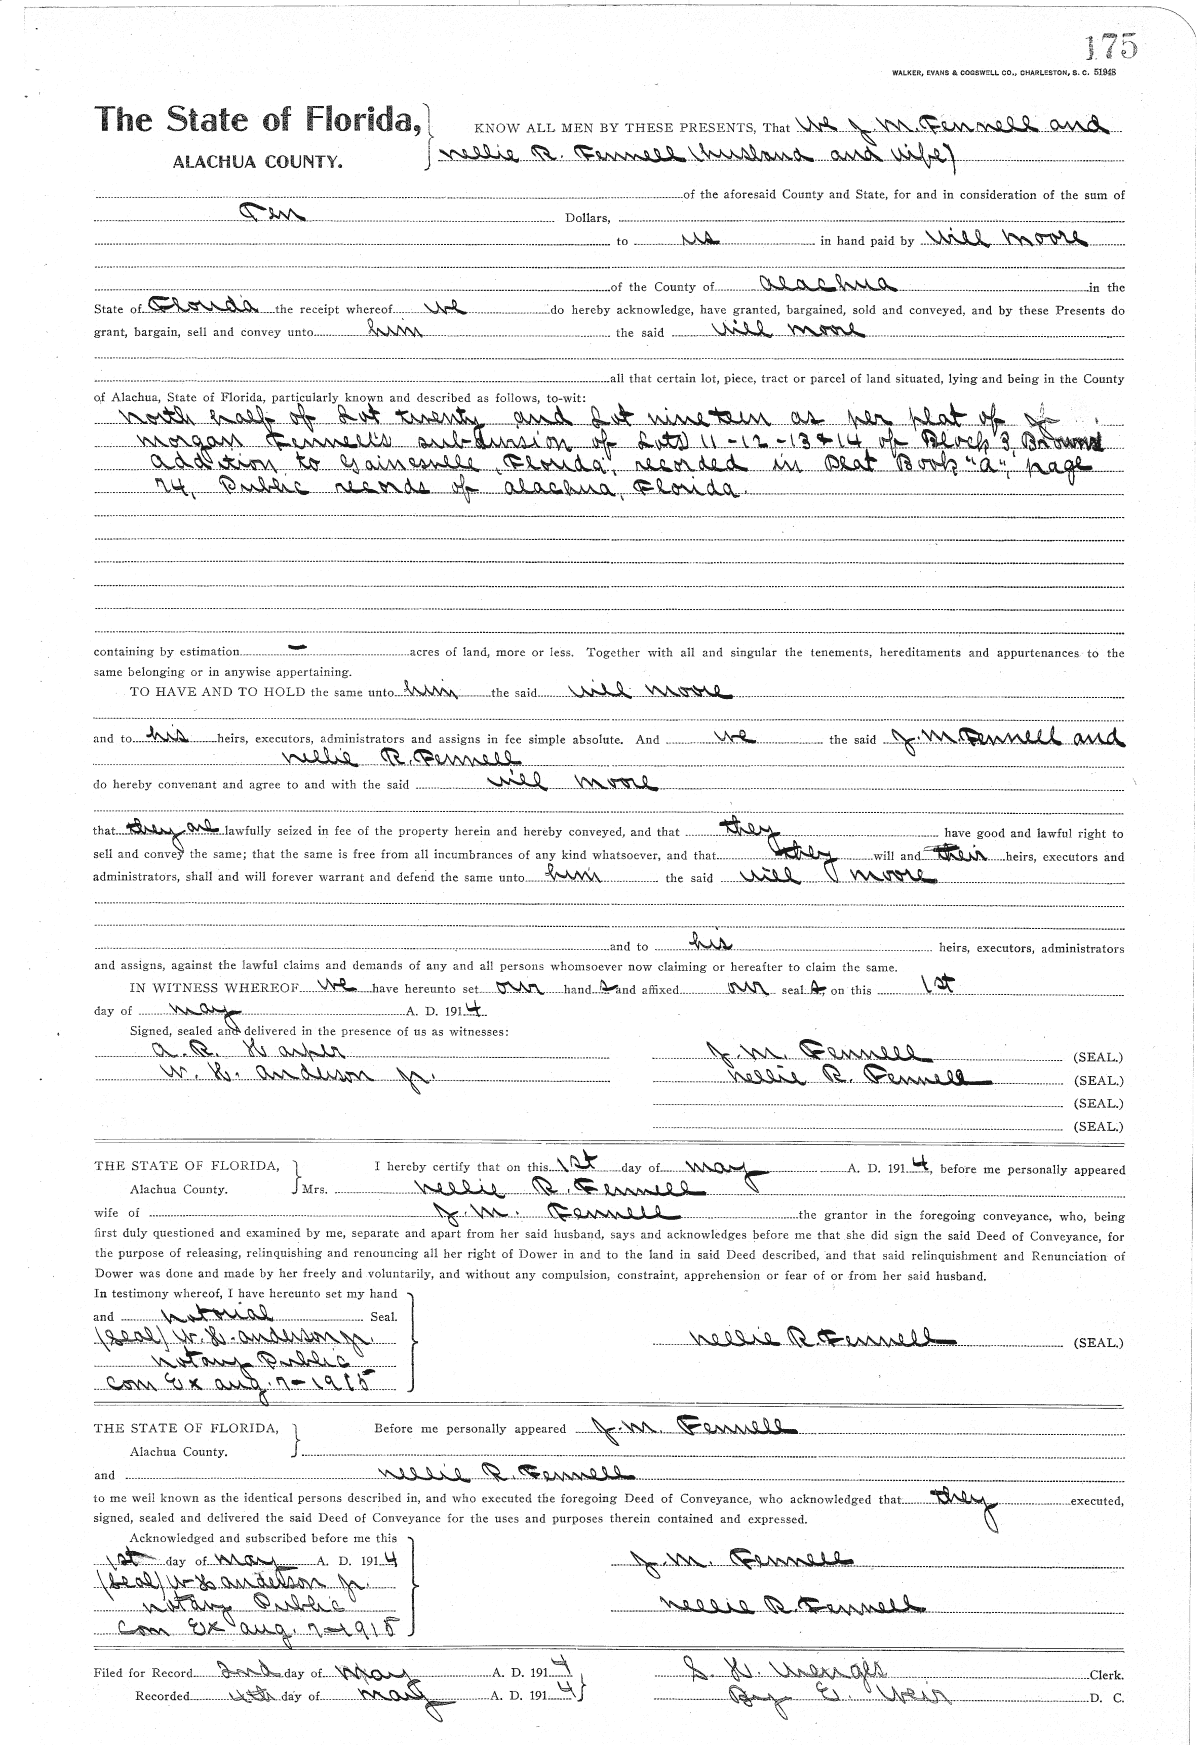 175
WALKER, EVANS & COGSWELL CO., CHARLESTON, S. C. 51948
The State of Florida,
ALACHUA COUNTY.
KNOW ALL MEN BY THESE PRESENTS, That We J. M. Fennell and
Nellie R. Fennell (husband and wife)
of the aforesaid County and State, for and in consideration of the sum of
Ten Dollars,
to us in hand paid by Will Moore
of the County of Alachua in the
State of Florida the receipt whereof we do hereby acknowledge, have granted, bargained, sold and conveyed, and by these Presents do
grant, bargain, sell and convey unto him the said Will Moore
all that certain lot, piece, tract or parcel of land situated, lying and being in the County
of Alachua, State of Florida, particularly known and described as follows, to-wit:
North half of Lot twenty and Lot nineteen as per plat of J
Morgan Fennell's subdivision of Lots 11-12-13 & 14 of Block 3, Browns
addition to Gainesville, Florida, recorded in Plat Book "A", page
74, Public records of Alachua, Florida.
containing by estimation — acres of land, more or less. Together with all and singular the tenements, hereditaments and appurtenances to the
same belonging or in anywise appertaining.
TO HAVE AND TO HOLD the same unto him the said Will Moore
and to his heirs, executors, administrators and assigns in fee simple absolute. And we the said J. M. Fennell and
Nellie R. Fennell
do hereby convenant and agree to and with the said Will Moore
that they are lawfully seized in fee of the property herein and hereby conveyed, and that they have good and lawful right to
sell and convey the same; that the same is free from all incumbrances of any kind whatsoever, and that they will and their heirs, executors and
administrators, shall and will forever warrant and defend the same unto him the said Will Moore
and to his heirs, executors, administrators
and assigns, against the lawful claims and demands of any and all persons whomsoever now claiming or hereafter to claim the same.
IN WITNESS WHEREOF we have hereunto set our hand s and affixed our seal s, on this 1st
day of May A. D. 1914.
Signed, sealed and delivered in the presence of us as witnesses:
A. R. Harper J. M. Fennell (SEAL.)
W. H. Anderson Jr. Nellie R. Fennell (SEAL.)
(SEAL.)
(SEAL.)
THE STATE OF FLORIDA, I hereby certify that on this 1st day of May A. D. 1914, before me personally appeared
Alachua County. Mrs. Nellie R. Fennell
wife of J. M. Fennell the grantor in the foregoing conveyance, who, being
first duly questioned and examined by me, separate and apart from her said husband, says and acknowledges before me that she did sign the said Deed of Conveyance, for
the purpose of releasing, relinquishing and renouncing all her right of Dower in and to the land in said Deed described, and that said relinquishment and Renunciation of
Dower was done and made by her freely and voluntarily, and without any compulsion, constraint, apprehension or fear of or from her said husband.
In testimony whereof, I have hereunto set my hand
and notorial Seal.
(Seal) W. H. Anderson Jr. Nellie R. Fennell (SEAL.)
Notary Public
Com Ex Aug. 7-1915
THE STATE OF FLORIDA, Before me personally appeared J. M. Fennell
Alachua County.
and Nellie R. Fennell
to me well known as the identical persons described in, and who executed the foregoing Deed of Conveyance, who acknowledged that they executed,
signed, sealed and delivered the said Deed of Conveyance for the uses and purposes therein contained and expressed.
Acknowledged and subscribed before me this
1st day of May A. D. 1914 J. M. Fennell
(Seal) W H Anderson Jr.
Notary Public Nellie R. Fennell
Com Ex Aug. 7-1915
Filed for Record 2nd day of May A. D. 1914 S. H. Wienges Clerk.
Recorded 4th day of May A. D. 1914 By E. Weir D. C.